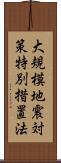 大規模地震対
策特別措置法